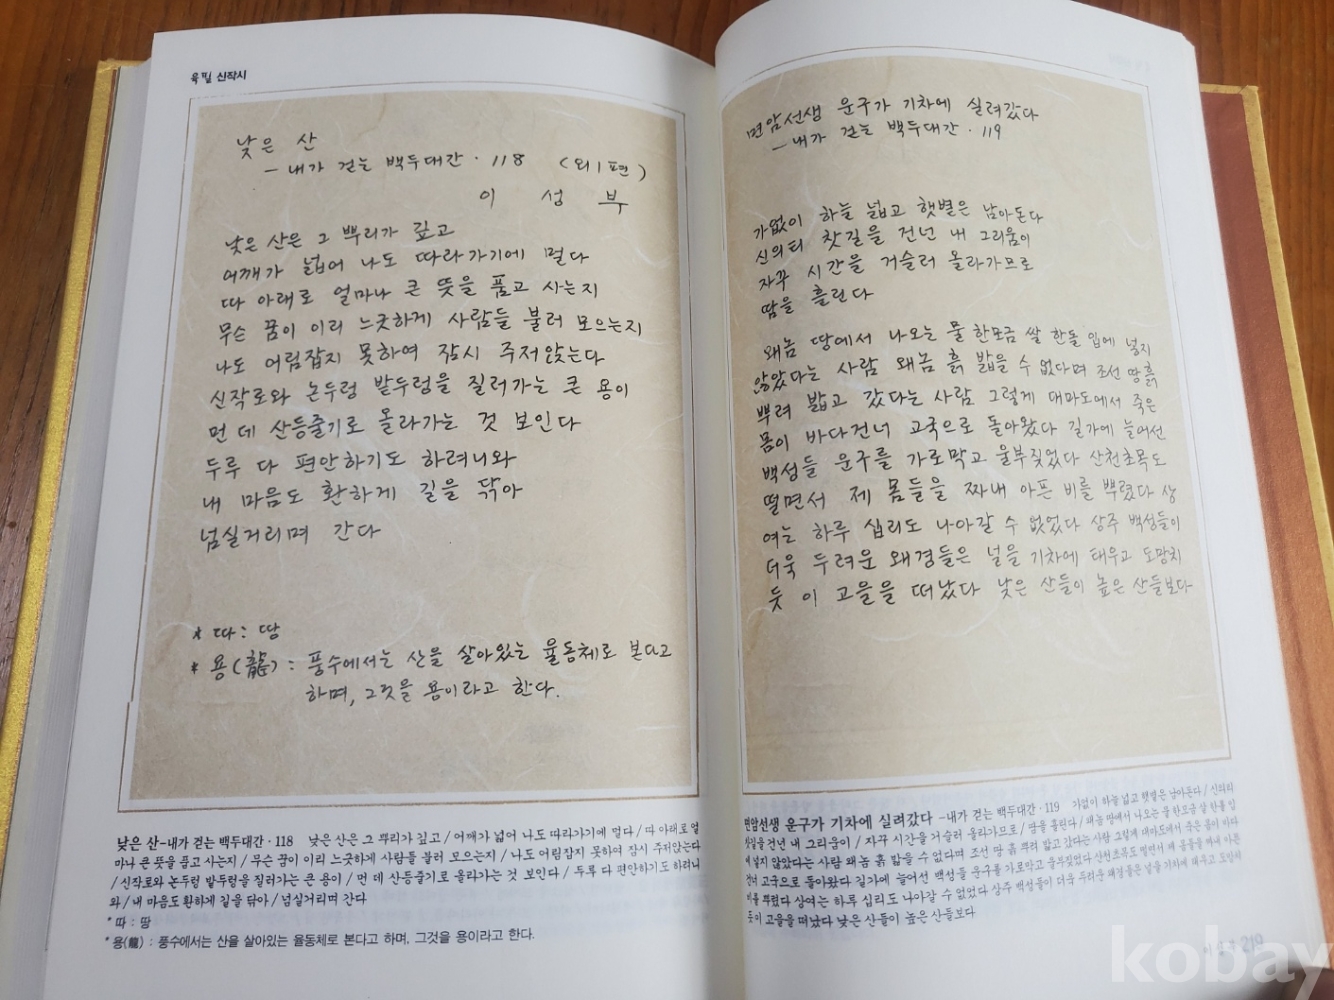 육필 신작시
낮은 산
- 내가 걷는 백두대간 · 118 (외 1편)
이 성 부
낮은 산은 그 뿌리가 깊고
어깨가 넓어 나도 따라가기에 멀다
따 아래로 얼마나 큰 뜻을 품고 사는지
무슨 꿈이 이리 느긋하게 사람들 불러 모으는지
나도 어림잡지 못하여 잠시 주저앉는다
신작로와 논두렁 밭두렁을 질러가는 큰 용이
먼 데 산등줄기로 올라가는 것 보인다
두루 다 편안하기도 하려니와
내 마음도 환하게 길을 닦아
넘실거리며 간다
* 따 : 땅
* 용(龍) : 풍수에서는 산을 살아있는 율동체로 본다고
하며, 그것을 용이라고 한다.
낮은 산-내가 걷는 백두대간 · 118 낮은 산은 그 뿌리가 깊고 / 어깨가 넓어 나도 따라가기에 멀다 / 따 아래로 얼
마나 큰 뜻을 품고 사는지 / 무슨 꿈이 이리 느긋하게 사람들 불러 모으는지 / 나도 어림잡지 못하여 잠시 주저앉는다
/ 신작로와 논두렁 밭두렁을 질러가는 큰 용이 / 먼 데 산등줄기로 올라가는 것 보인다 / 두룩 다 편안하기도 하려니
와 / 내 마음도 환하게 길을 닦아 / 넘실거리며 간다
* 따 : 땅
* 용(龍) : 풍수에서는 산을 살아있는 율동체로 본다고 하며, 그것을 용이라고 한다.
면암선생 운구가 기차에 실려갔다
- 내가 걷는 백두대간 · 119
가없이 하늘 넓고 햇볕은 남아돈다
신의터 찻길을 건넌 내 그리움이
자꾸 시간을 거슬러 올라가므로
땀을 흘린다
왜놈 땅에서 나오는 물 한모금 쌀 한톨 입에 넣지
않았다는 사람 왜놈 흙 밟을 수 없다며 조선 땅 흙
뿌려 밟고 갔다는 사람 그렇게 대마도에서 죽은
몸이 바다건너 고국으로 돌아왔다 길가에 늘어선
백성들 운구를 가로막고 울부짖었다 산천초목도
떨면서 제 몸들을 짜내 아픈 비를 뿌렸다 상
여는 하루 십리도 나아갈 수 없었다 상주 백성들이
더욱 두려운 왜경들은 널을 기차에 태우고 도망치
듯 이 고을을 떠났다 낮은 산들이 높은 산들보다
면암선생 운구가 기차에 실려갔다 -내가 걷는 백두대간 · 119 가없이 하늘 넓고 햇볕은 남아돈다 / 신의터
찻길을 건넌 내 그리움이 / 자꾸 시간을 거슬러 올라가므로 / 땀을 흘린다 / 왜놈 땅에서 나오는 물 한모금 쌀 한톨 입
에 넣지 않았다는 사람 왜놈 흙 밟을 수 없다며 조선 땅 흙 뿌려 밟고 갔다는 사람 그렇게 대마도에서 죽은 몸이 바다
건너 고국으로 돌아왔다 길가에 늘어선 백성들 운구를 가로막고 울부짖었다 산천초목도 떨면서 제 몸들을 짜내 아픈
비를 뿌렸다 상여는 하루 십리도 나아갈 수 없었다 상주 백성들이 더욱 두려운 왜경들은 널을 기차에 태우고 도망치
듯 이 고을을 떠났다 낮은 산들이 높은 산들보다
이성부 219
kobay